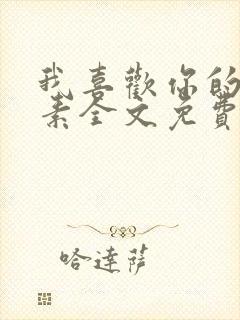 我喜歡你的
素全文免費
哈達薩